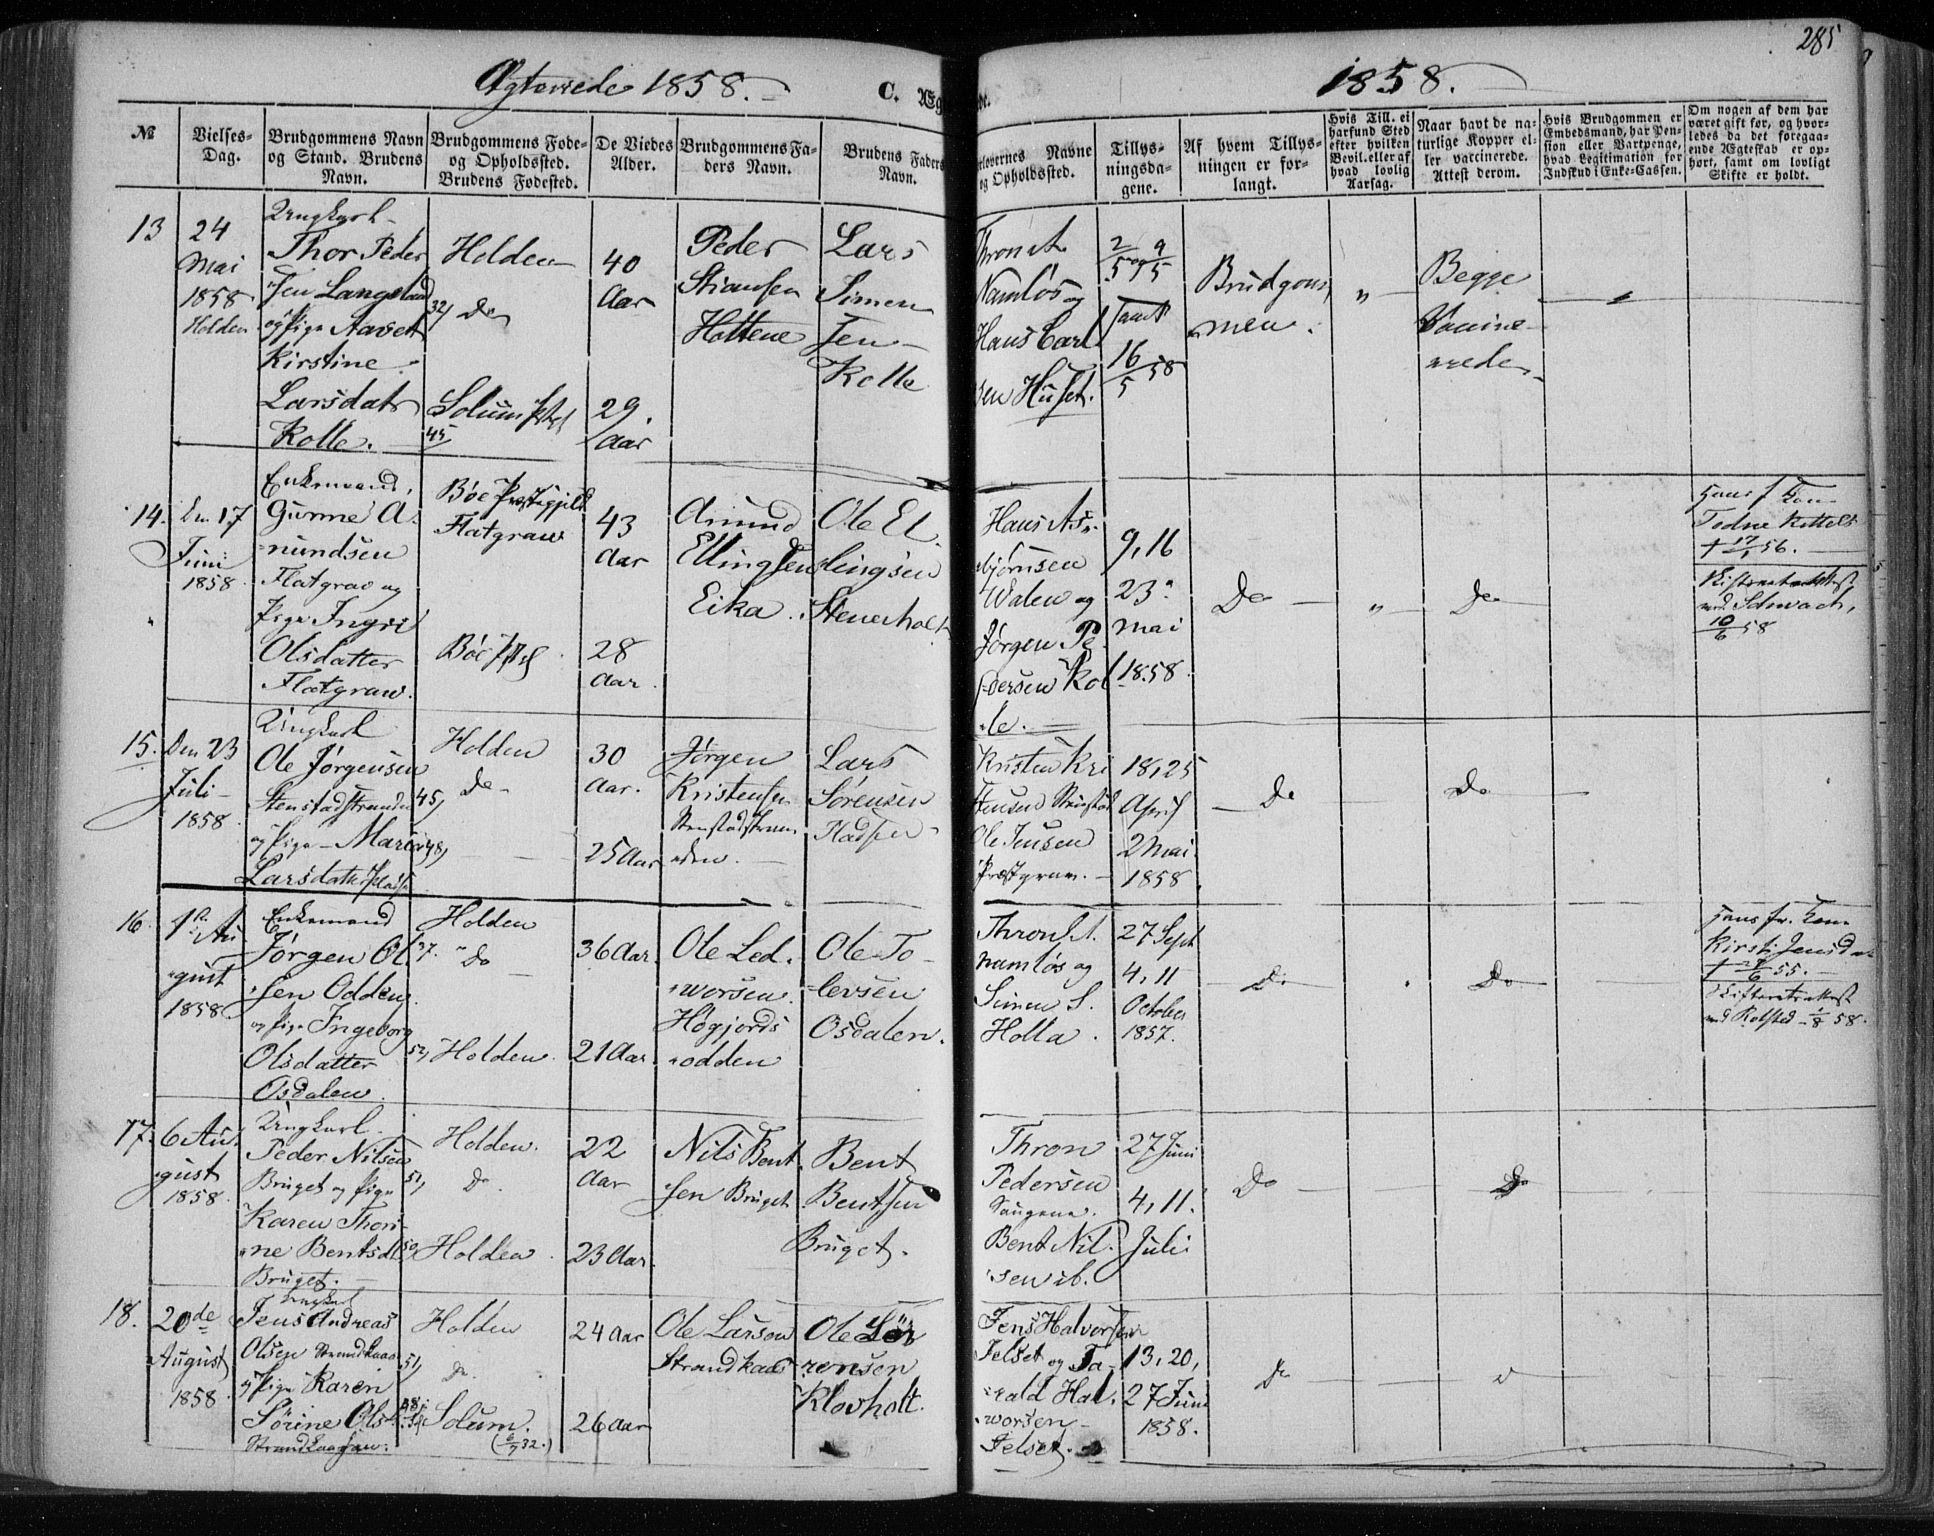 285
Ægteviede 1858.
C. Æg
de.
1858.
№
Vielses-
Dag.
Brudgommens Navn
og Stand. Brudens
Navn.
Brudgommens Føde-
og Opholdssted.
Brudens Fødested.
De Viedes
Alder.
Brudgommens Fa-
ders Navn.
Brudens Faders
Navn.
orlovernes Navne
og Opholdssted.
Tillys-
ningsda-
gene.
Af hvem Tillys-
ningen er for-
langt.
Hvis Till. ei
har fund Sted
efter hvilken
Bevil. eller af
hvad lovlig
Aarsag.
Naar havt de na-
turlige Kopper el-
ler vaccinerede.
Attest derom.
Hvis Brudgommen er
Embedsmand, har Pen-
sion eller Vartpenge,
hvad Legitimation for
Indskud i Enke-Cassen.
Om nogen af dem har
været gift før, og hvor-
ledes da det foregaa-
ende Ægteskab er op-
hørt, samt om lovligt
Skifte er holdt.
13
24
Mai
1858
Holden
Ungkarl
Thor Peder
sen Langeland
og Pige Aaset
Kirstine
Larsdatr
Kolle.
Holden
32, Do
Solum
45
40
Aar
29.
Aar
Peder
Stiansen
Holtene
Lars
Simen
sen
Kolle
Thron A
Namløs og
Hans Carl
sen Huset.
2/5 og 9/5
samt
16/5 58
Brudgom
men.
"
Begge
Vaccine
rede
14.
Den 17
Juni
1858
Enkemand,
Gunne A.
mundsen
Flatgrav og
Pige Ingri
Olsdatter
Flatgrav.
Bøe Præstegjeld
Flatgrav
Bøe
43
Aar
28
Aar.
Amund
Ellingsen
Eika.
Ole El
lingsen
Stenerholt
Hans As
bjørnsen
Valen og
Jørgen Pe
dersen Kol
le.
9, 16
23
Mai
1858
Do
"
Do
Hans f. Kone
Todne Kittels
† 17/1 56.
Skifteattest
med Schwach,
10/6 58
15.
Den 23
Juli
1858
Ungkarl
Ole Jørgensen
Stenstadstranden
og Pige Maria
Larsdatter
Holden
45, Do
48,
30
Aar.
25 Aar
Jørgen
Kristensen
Stenstadstran
den.
Lars
Sørensen
Pladsen
Kristen Kri
stensen Stenstad
Ole Jensen
Præstgrav.
18, 25
April
2 Mai
1858
Do
Do
16
1ste Au
gust
1858
Enkemand
Jørgen Ol
sen Odden
og Pige Ingeborg
Olsdatter
Osdalen.
Holden
37. Do
52, Holden
36 Aar
21 Aar
Ole Led
vorsen
Høgjords
odden
Ole To
levsen
Osdalen.
Thron A.
Namløs og
Simen S.
Holla.
27 Sept
4, 11
October
1857.
Do
Do
Hans f. Kone
Kirsti Jensda
† 55.
Skifteattest
med Rolsted 1/8 58.
17.
6 Au
gust
1858.
Ungkarl
Peder Nilsen
Bruget og Pige
Karen Thori
ne Bentsdt
Bruget.
Holden.
51, Do.
50, Holden.
22
Aar
23 Aar.
Nils Bent
sen Bruget
Bent
Bentsen
Bruget.
Thron
Pedersen
Saugene.
Bent Nil
sen ib.
27 Juni
4, 11.
Juli
Do
Do
18.
20de
August
1858
Ungkarl
Jens Andreas
Olsen Strandkaas
og Pige Karen
Sørine Ols
Holden
51, Do.
Solum.
(6/9 32.)
24 Aar
26 Aar
Ole Larsen
Strandkaas
Ole Sør
rensen
Klovholt.
Jens Halvorsen
Jelset og Ta
rald Hal
vorsen
Jelset.
13, 20,
27 Juni
1858.
Do